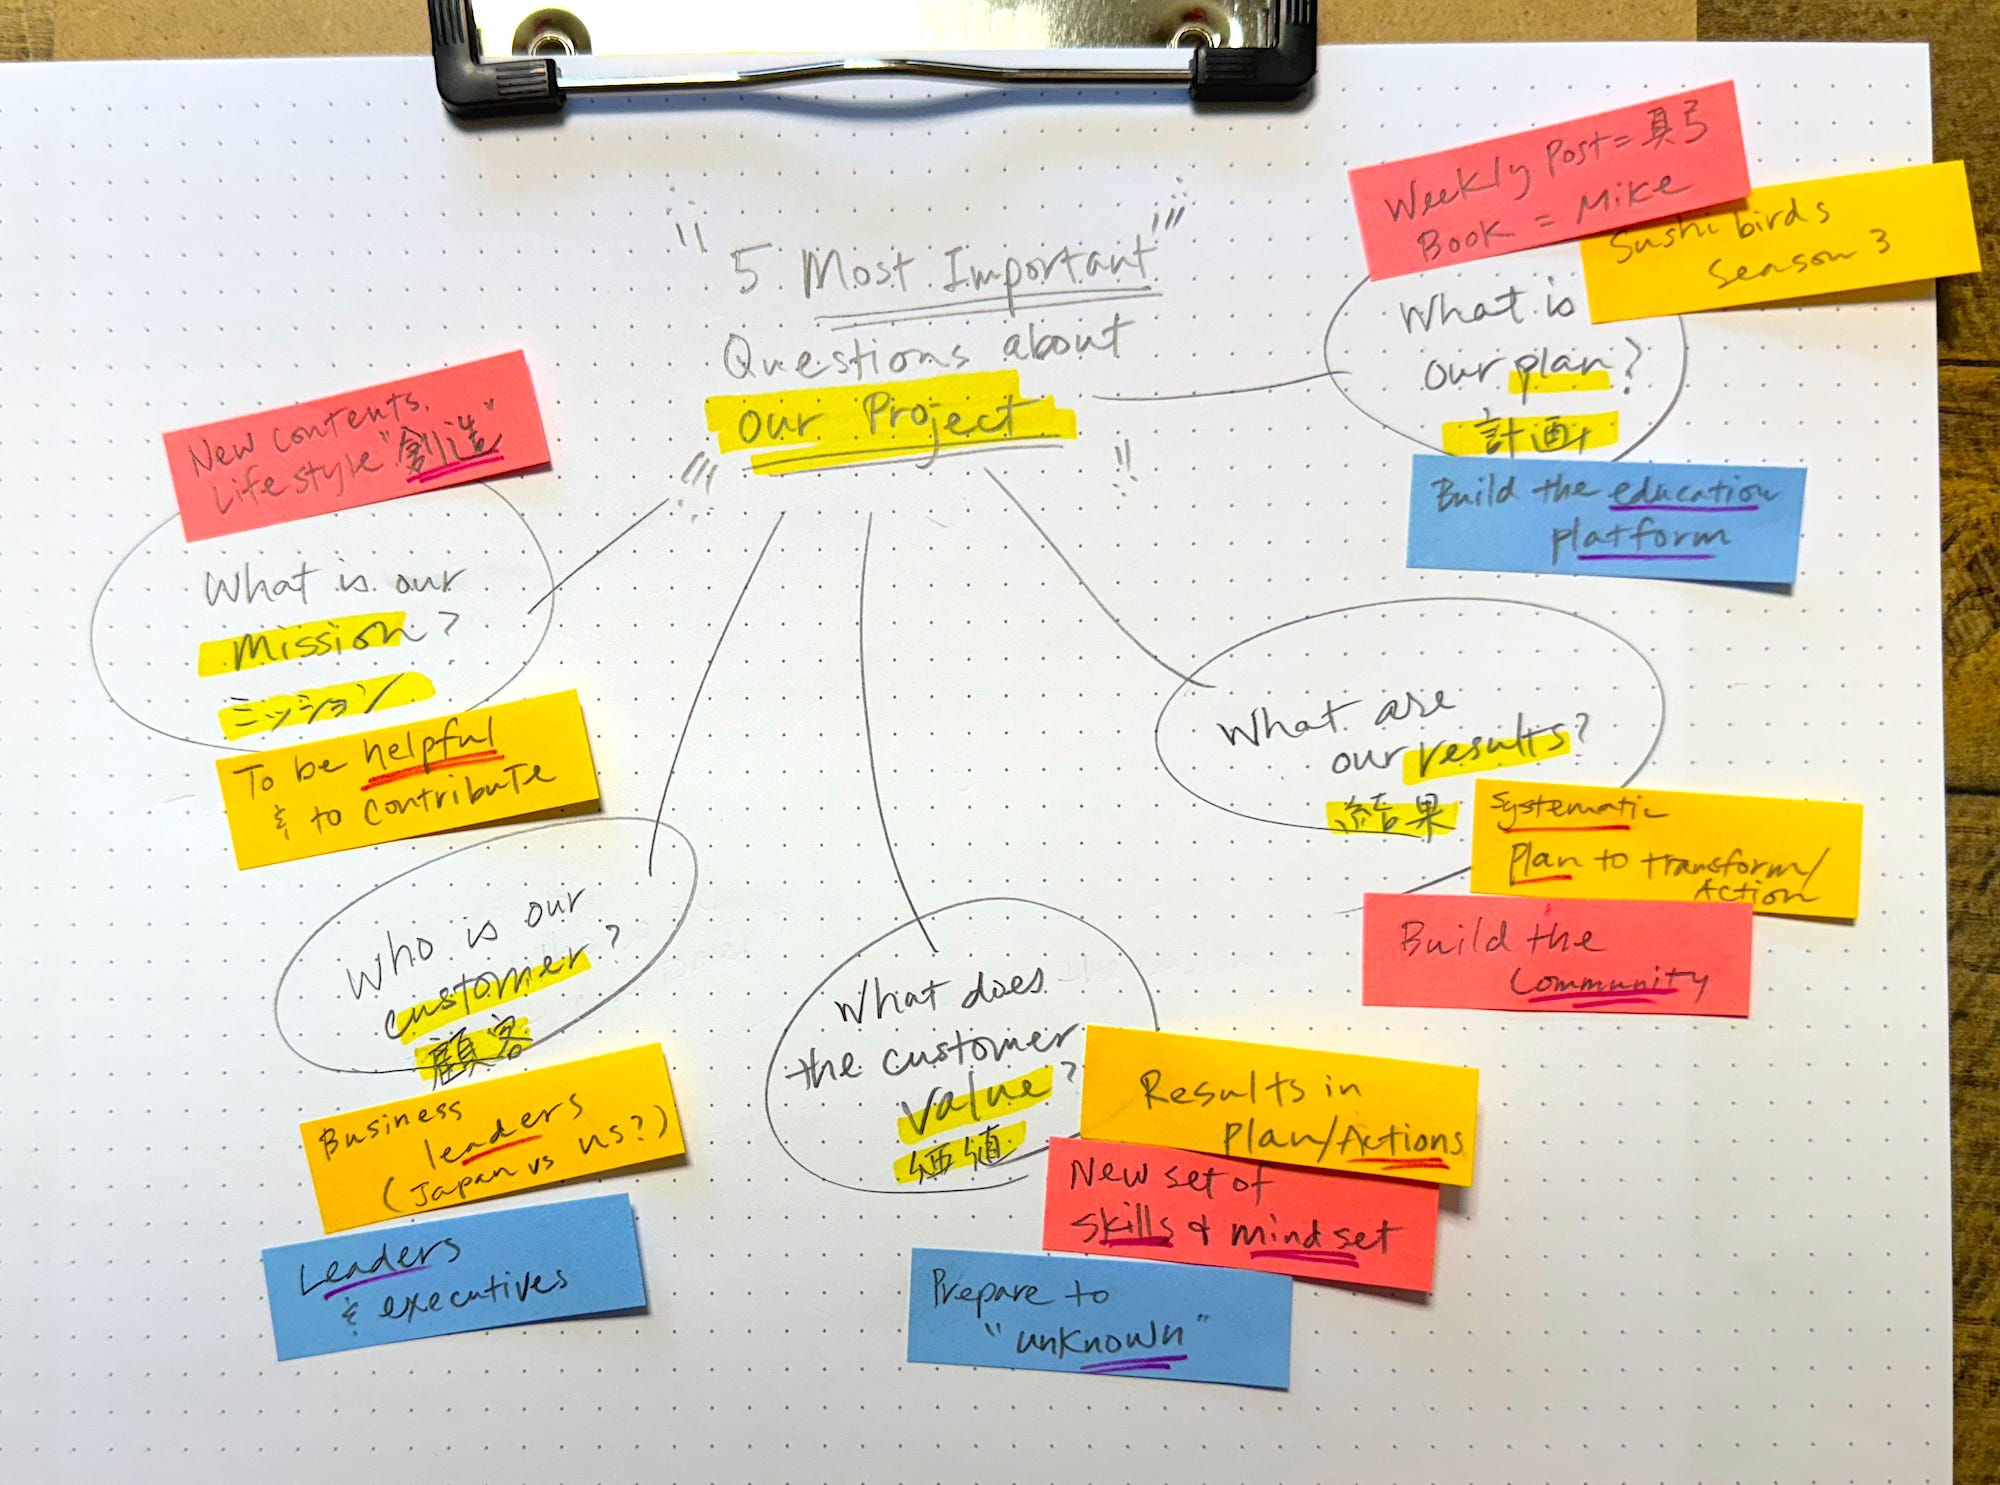 5 Most Important
Questions about
our Project
New contents.
Life style "創造"
What is our
Mission?
ミッション
To be helpful
& to contribute
Who is our
customer?
顧客
Business
leaders
(Japan vs US?)
Leaders
& executives
What does
the customer
value?
価値
Results in
Plan/Actions
New set of
skills & mindset
Prepare to
"unknown"
What are
our results?
結果
Systematic
Plan to transform/
Action
Build the
Community
Weekly Post = 真弓
Book = Mike
Sushi birds
Season 3
What is
our plan?
計画
Build the education
platform